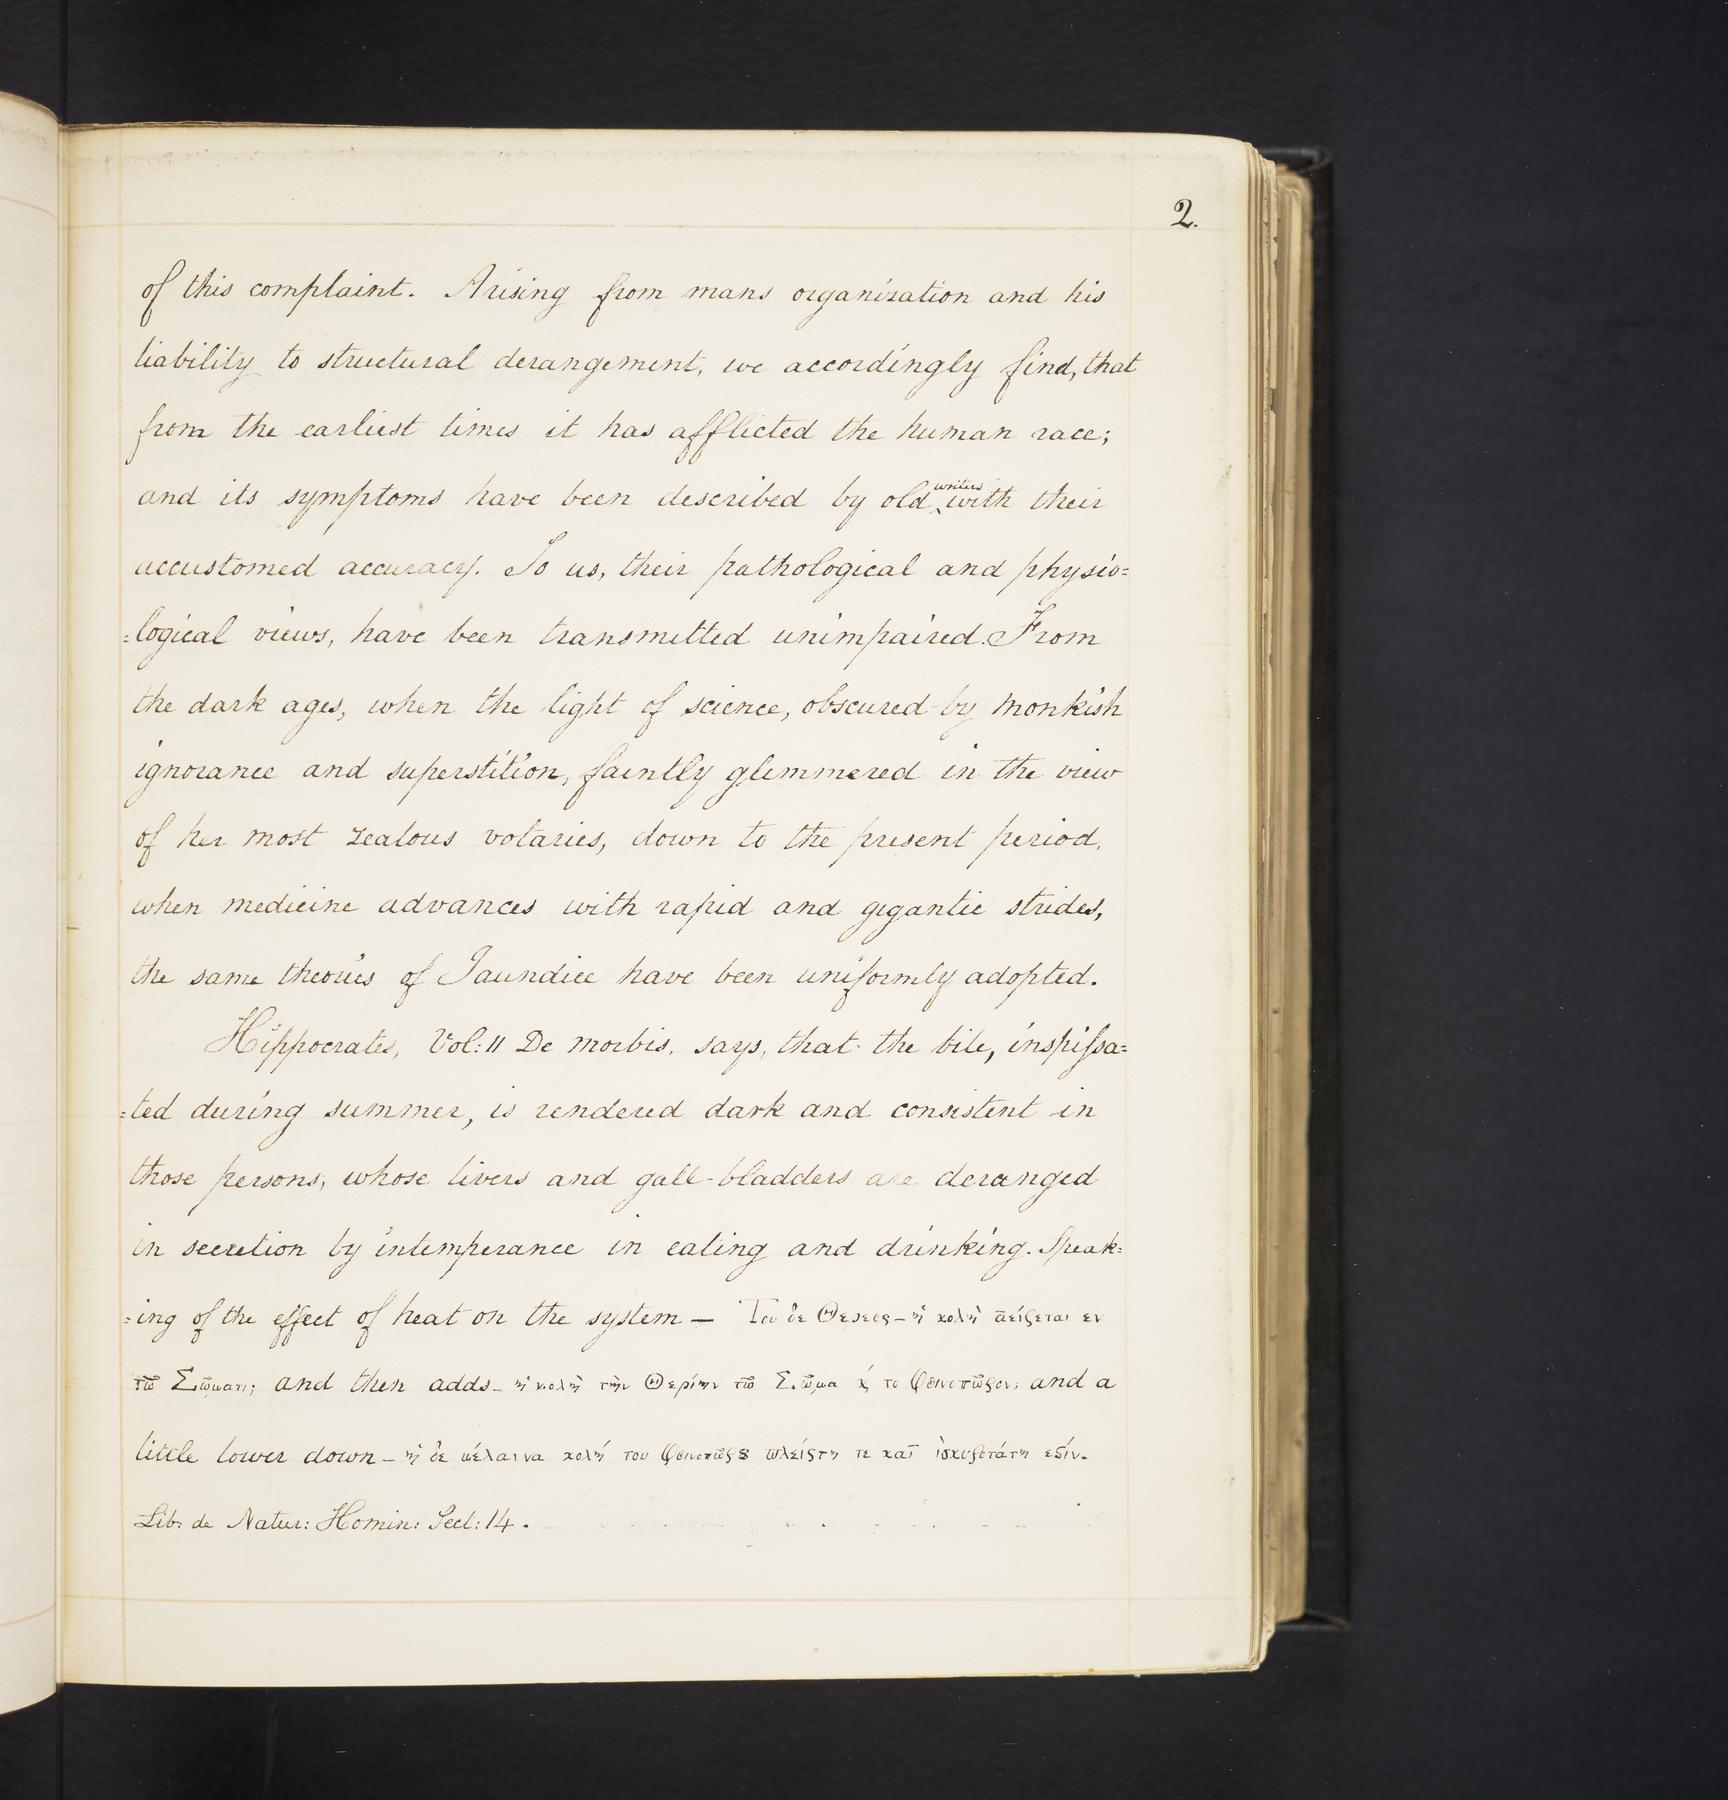 2.
of this complaint. Arising from mans organization and his
liability to structural derangement, we accordingly find, that
from the earliest times it has afflicted the human race;
and its symptoms have been described by old writers with their
accustomed accuracy. To us, their pathological and physio=
=logical views, have been transmitted unimpaired. From
the dark ages, when the light of science, obscured by monkish
ignorance and superstition, faintly glimmered in the view
of her most zealous votaries, down to the present period,
when medicine advances with rapid and gigantic strides,
the same theories of Jaundice have been uniformly adopted.
Hippocrates, Vol: 11 De morbis, says, that the bile, inspissa=
=ted during summer, is rendered dark and consistent in
those persons, whose livers and gall-bladders are deranged
in secretion by intemperance in eating and drinking. Speak=
=ing of the effect of heat on the system — Του δε Θερεος – ἡ χολὴ εν
τῶ Σῶματι; and then adds – ἡ χολὴ τὴν Θερίην τῶ Σῶμα το and a
little lower down – ἡ δε μέλαινα χολή του τε καὶ
Lib: de Natur: Homin: Sect: 14.